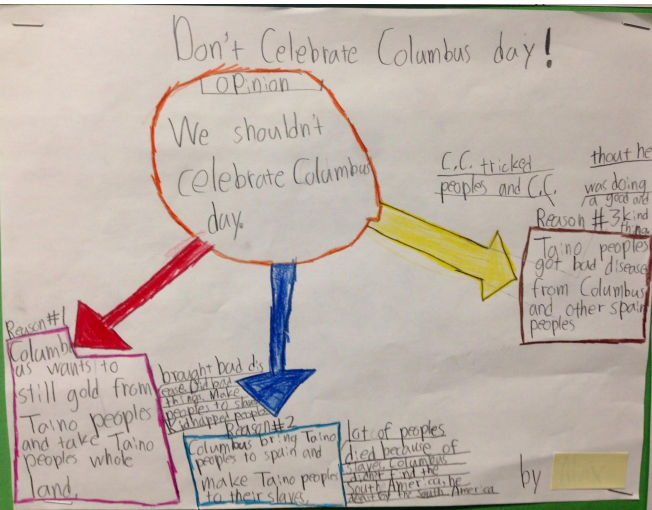 Don't Celebrate Columbus day!
Opinion
We shouldn't
celebrate Columbus
day.
C.C. tricked
peoples and C.C.
thout he
was doing
a good and
kind
thing.
Reason #3
Taino peoples
got bad disease
from Columbus
and other spain
peoples
Reason #1
Columb
us wants to
still gold from
Taino peoples
and take Taino
peoples whole
land.
brought bad dis
ease. Did bad
things. Make
peoples to
Kidnapped peoples
Reason #2
Columbus bring Taino
peoples to spain and
make Taino peoples
to their slaves.
lot of peoples
died because of
slaves. Columbus
didn't find the
South America. he
by the South America
by